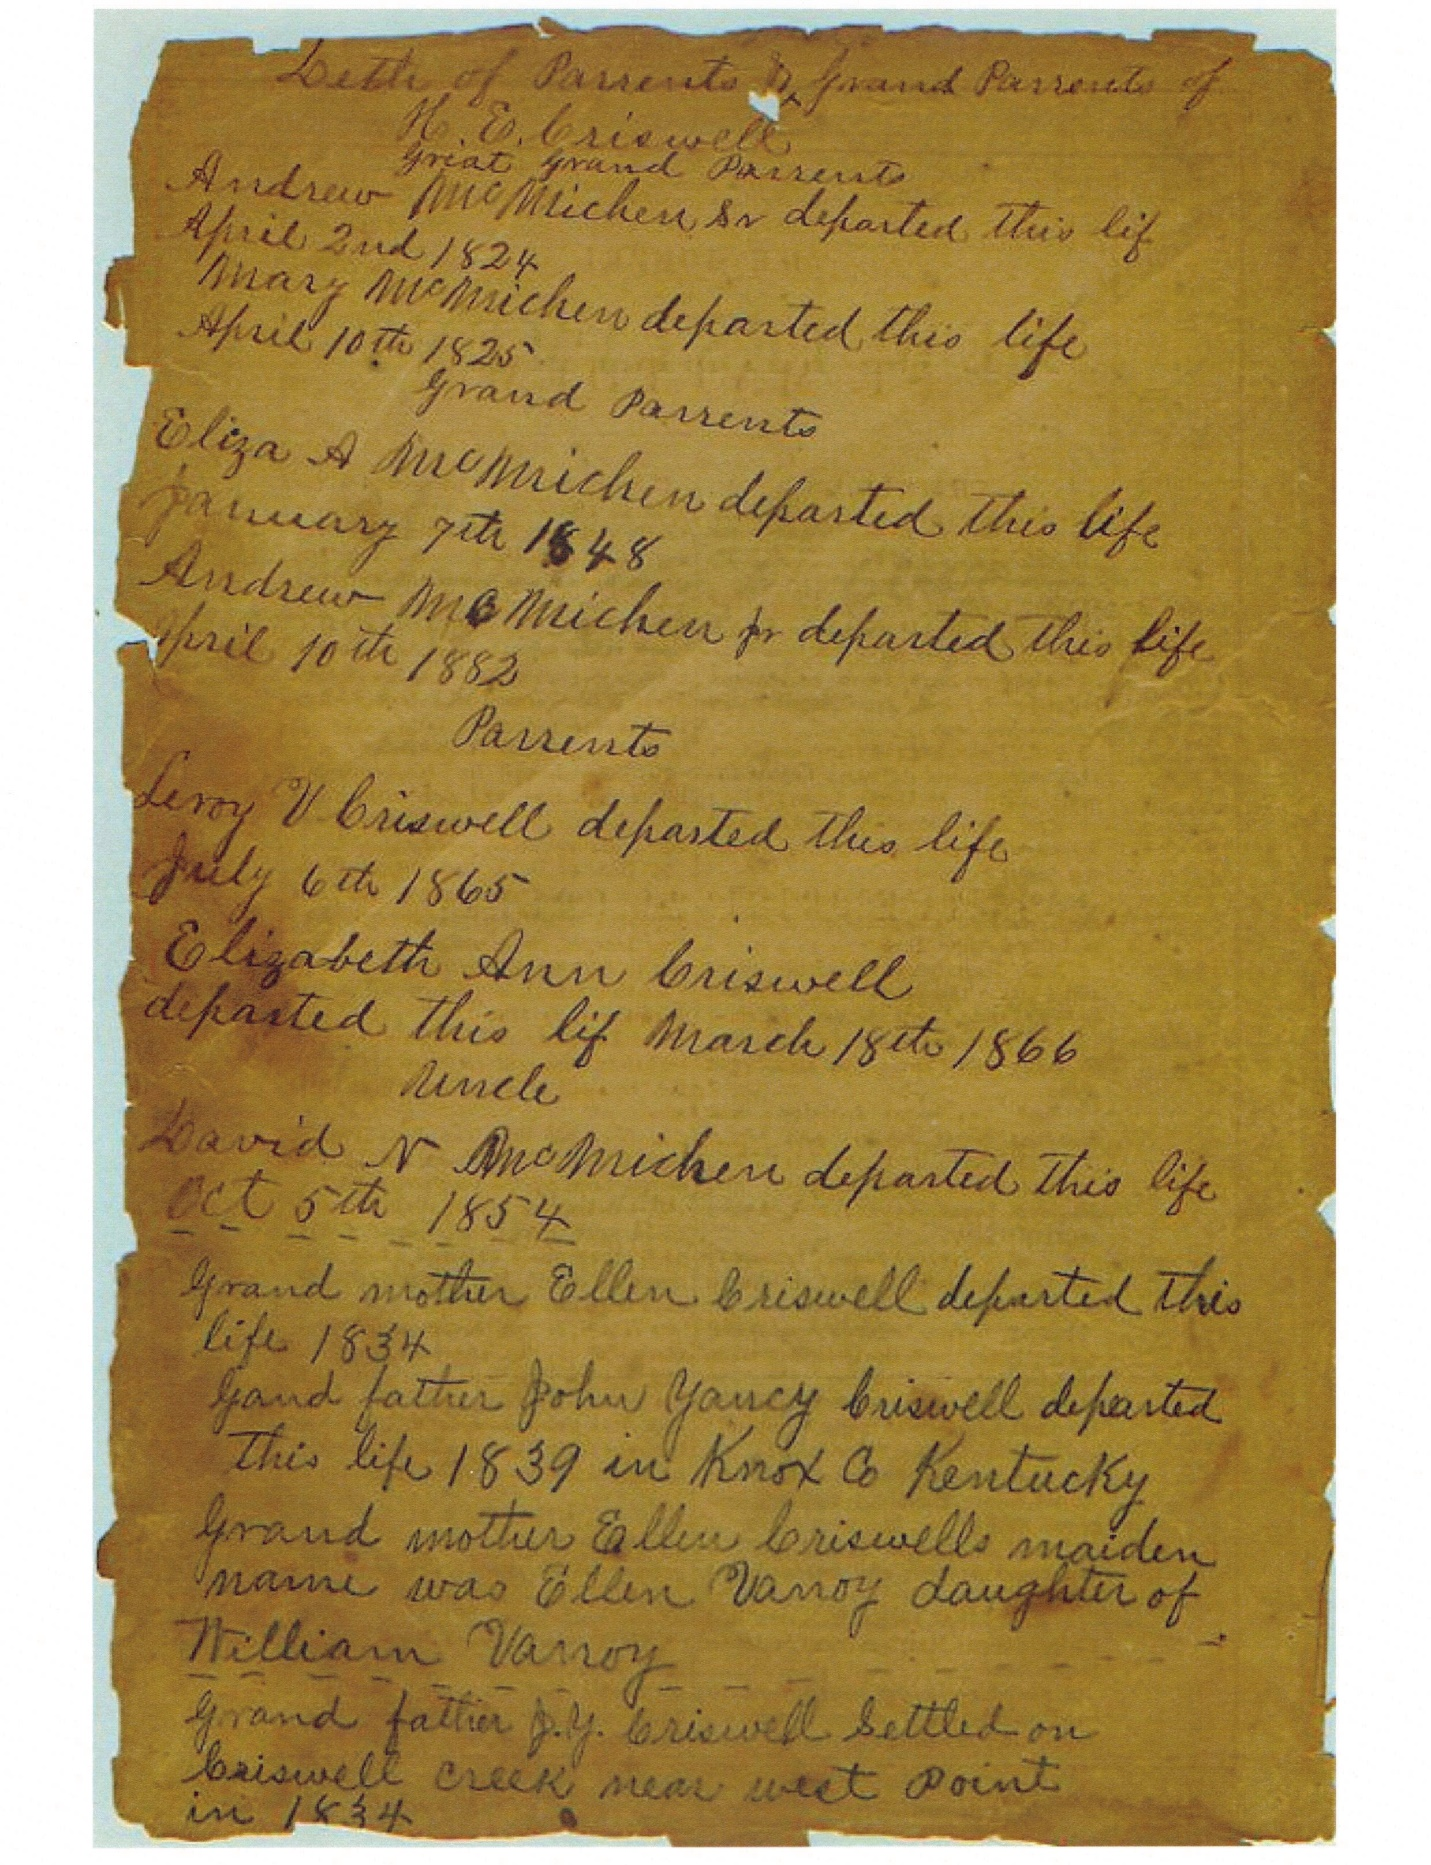 Deth of Parrents & Grand Parrents of
H. E. Criswell
Great Grand Parrents
Andrew McMichen Sr departed this lif
April 2nd 1824
Mary McMichen departed this life
April 10th 1825
Grand Parrents
Eliza A McMichen departed this life
January 7th 1848
Andrew McMichen Jr departed this life
April 10th 1882
Parrents
Leroy V Criswell departed this life
July 6th 1865
Elizabeth Ann Criswell
departed this lif March 18th 1866
Uncle
David N McMichen departed this life
Oct 5th 1854
Grand mother Ellen Criswell departed this
life 1834
Gand father John Yancy Criswell departed
this life 1839 in Knox Co Kentucky
Grand mother Ellen Criswells maiden
name was Ellen Vanoy daughter of
William Vanoy
Grand father J.Y. Criswell Settled on
Criswell creek near west Point
in 1834